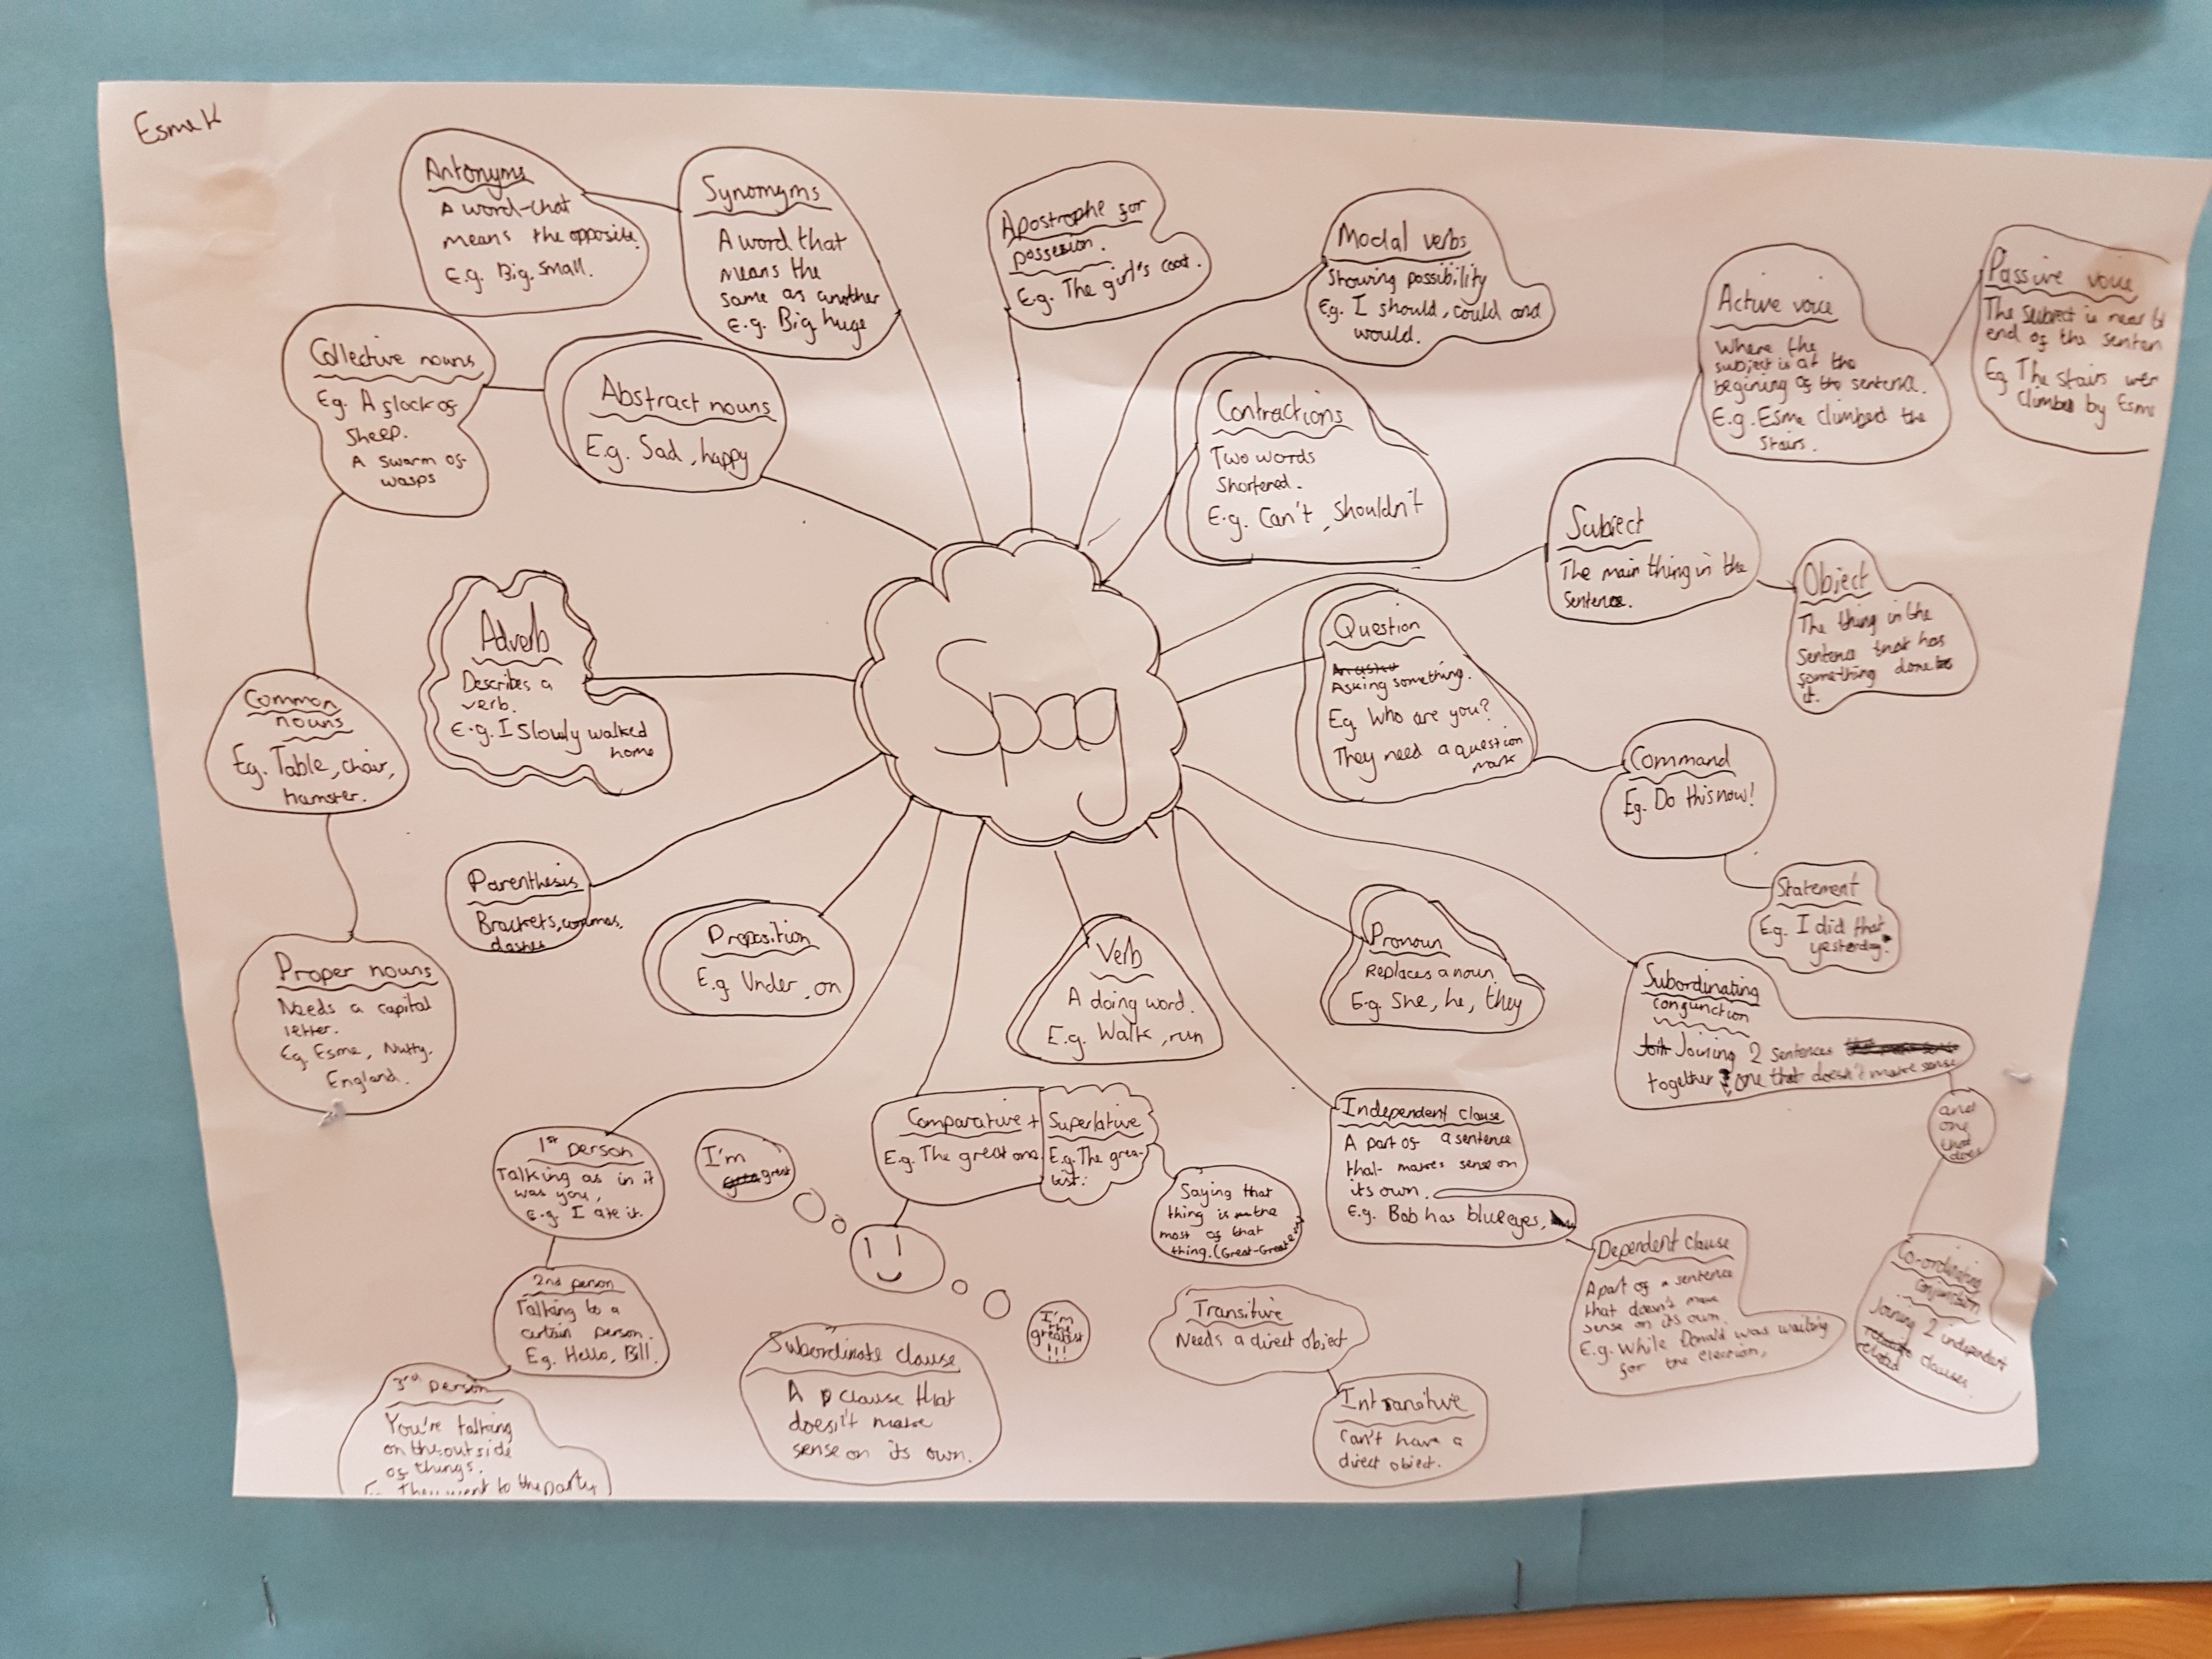 Esme K
Antonyms
A word that
means the opposite.
E.g. Big, small.
Synomyms
A word that
means the
same as another
E.g. Big, huge
Apostrophe for
possesion.
E.g. The girl's coat.
Modal verbs
Showing possibility
Eg. I should, could and
would.
Active voice
Where the
subject is at the
begining of the sentence.
E.g. Esme climbed the
stairs.
Passive voice
The subject is near
end of the senten
Eg The stairs wer
climbed by Esme
Collective nouns
Eg. A flock of
sheep.
A swarm of
wasps
Abstract nouns
E.g. Sad, happy
Contractions
Two words
shortened.
E.g. Can't, shouldn't
Subject
The main thing in the
sentence.
Object
The thing in the
sentence that has
something done to
it.
Adverb
Describes a
verb.
E.g. I slowly walked
home
Spag
Question
Asking something.
Eg. Who are you?
They need a question
mark
Common
nouns
Eg. Table, chair,
hamster.
Command
Eg. Do this now!
Statement
E.g. I did that
yesterday.
Parenthesis
Brackets, commas,
dashes
Preposition
E.g Under, on
Verb
A doing word.
E.g. Walk, run
Pronoun
Replaces a noun
E.g. She, he, they
Proper nouns
Needs a capital
letter.
Eg. Esme, Nutty,
England.
Subordinating
conjunction
Joining 2 sentences
together, one that doesn't make sense
and
one
that
does
Co-ordinating
conjunction
Joining 2 independent
clauses
1st person
Talking as in it
was you,
E.g. I ate it.
2nd person
Talking to a
certain person.
Eg. Hello, Bill.
3rd person
You're talking
on the outside
of things.
They went to the party
I'm
great
Comparative +
E.g. The great one
Superlative
E.g. The grea-
test.
Saying that
thing is the
most of that
thing. (Great-Greatest)
I'm
the
greatest
!!!
Independent clause
A part of a sentence
that makes sense on
its own.
E.g. Bob has blue eyes,
Dependent clause
A part of a sentence
that doesn't make
sense on its own.
E.g. While Donald was waiting
for the election,
Subordinate clause
A clause that
doesn't make
sense on its own.
Transitive
Needs a direct object
Intransitive
Can't have a
direct object.